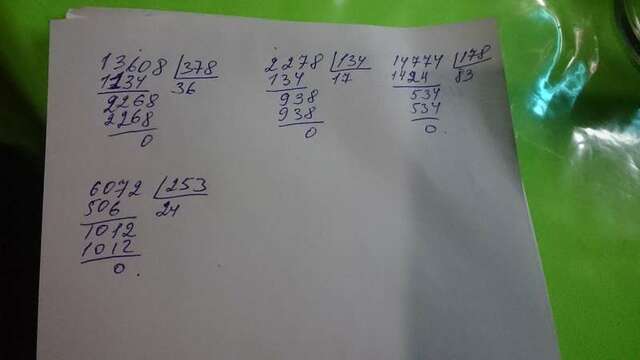 13608 378
1134 36
2268
2268
0
2278 134
134 17
938
938
0
14774 178
1424 83
534
534
0.
6072 253
506 24
1012
1012
0.